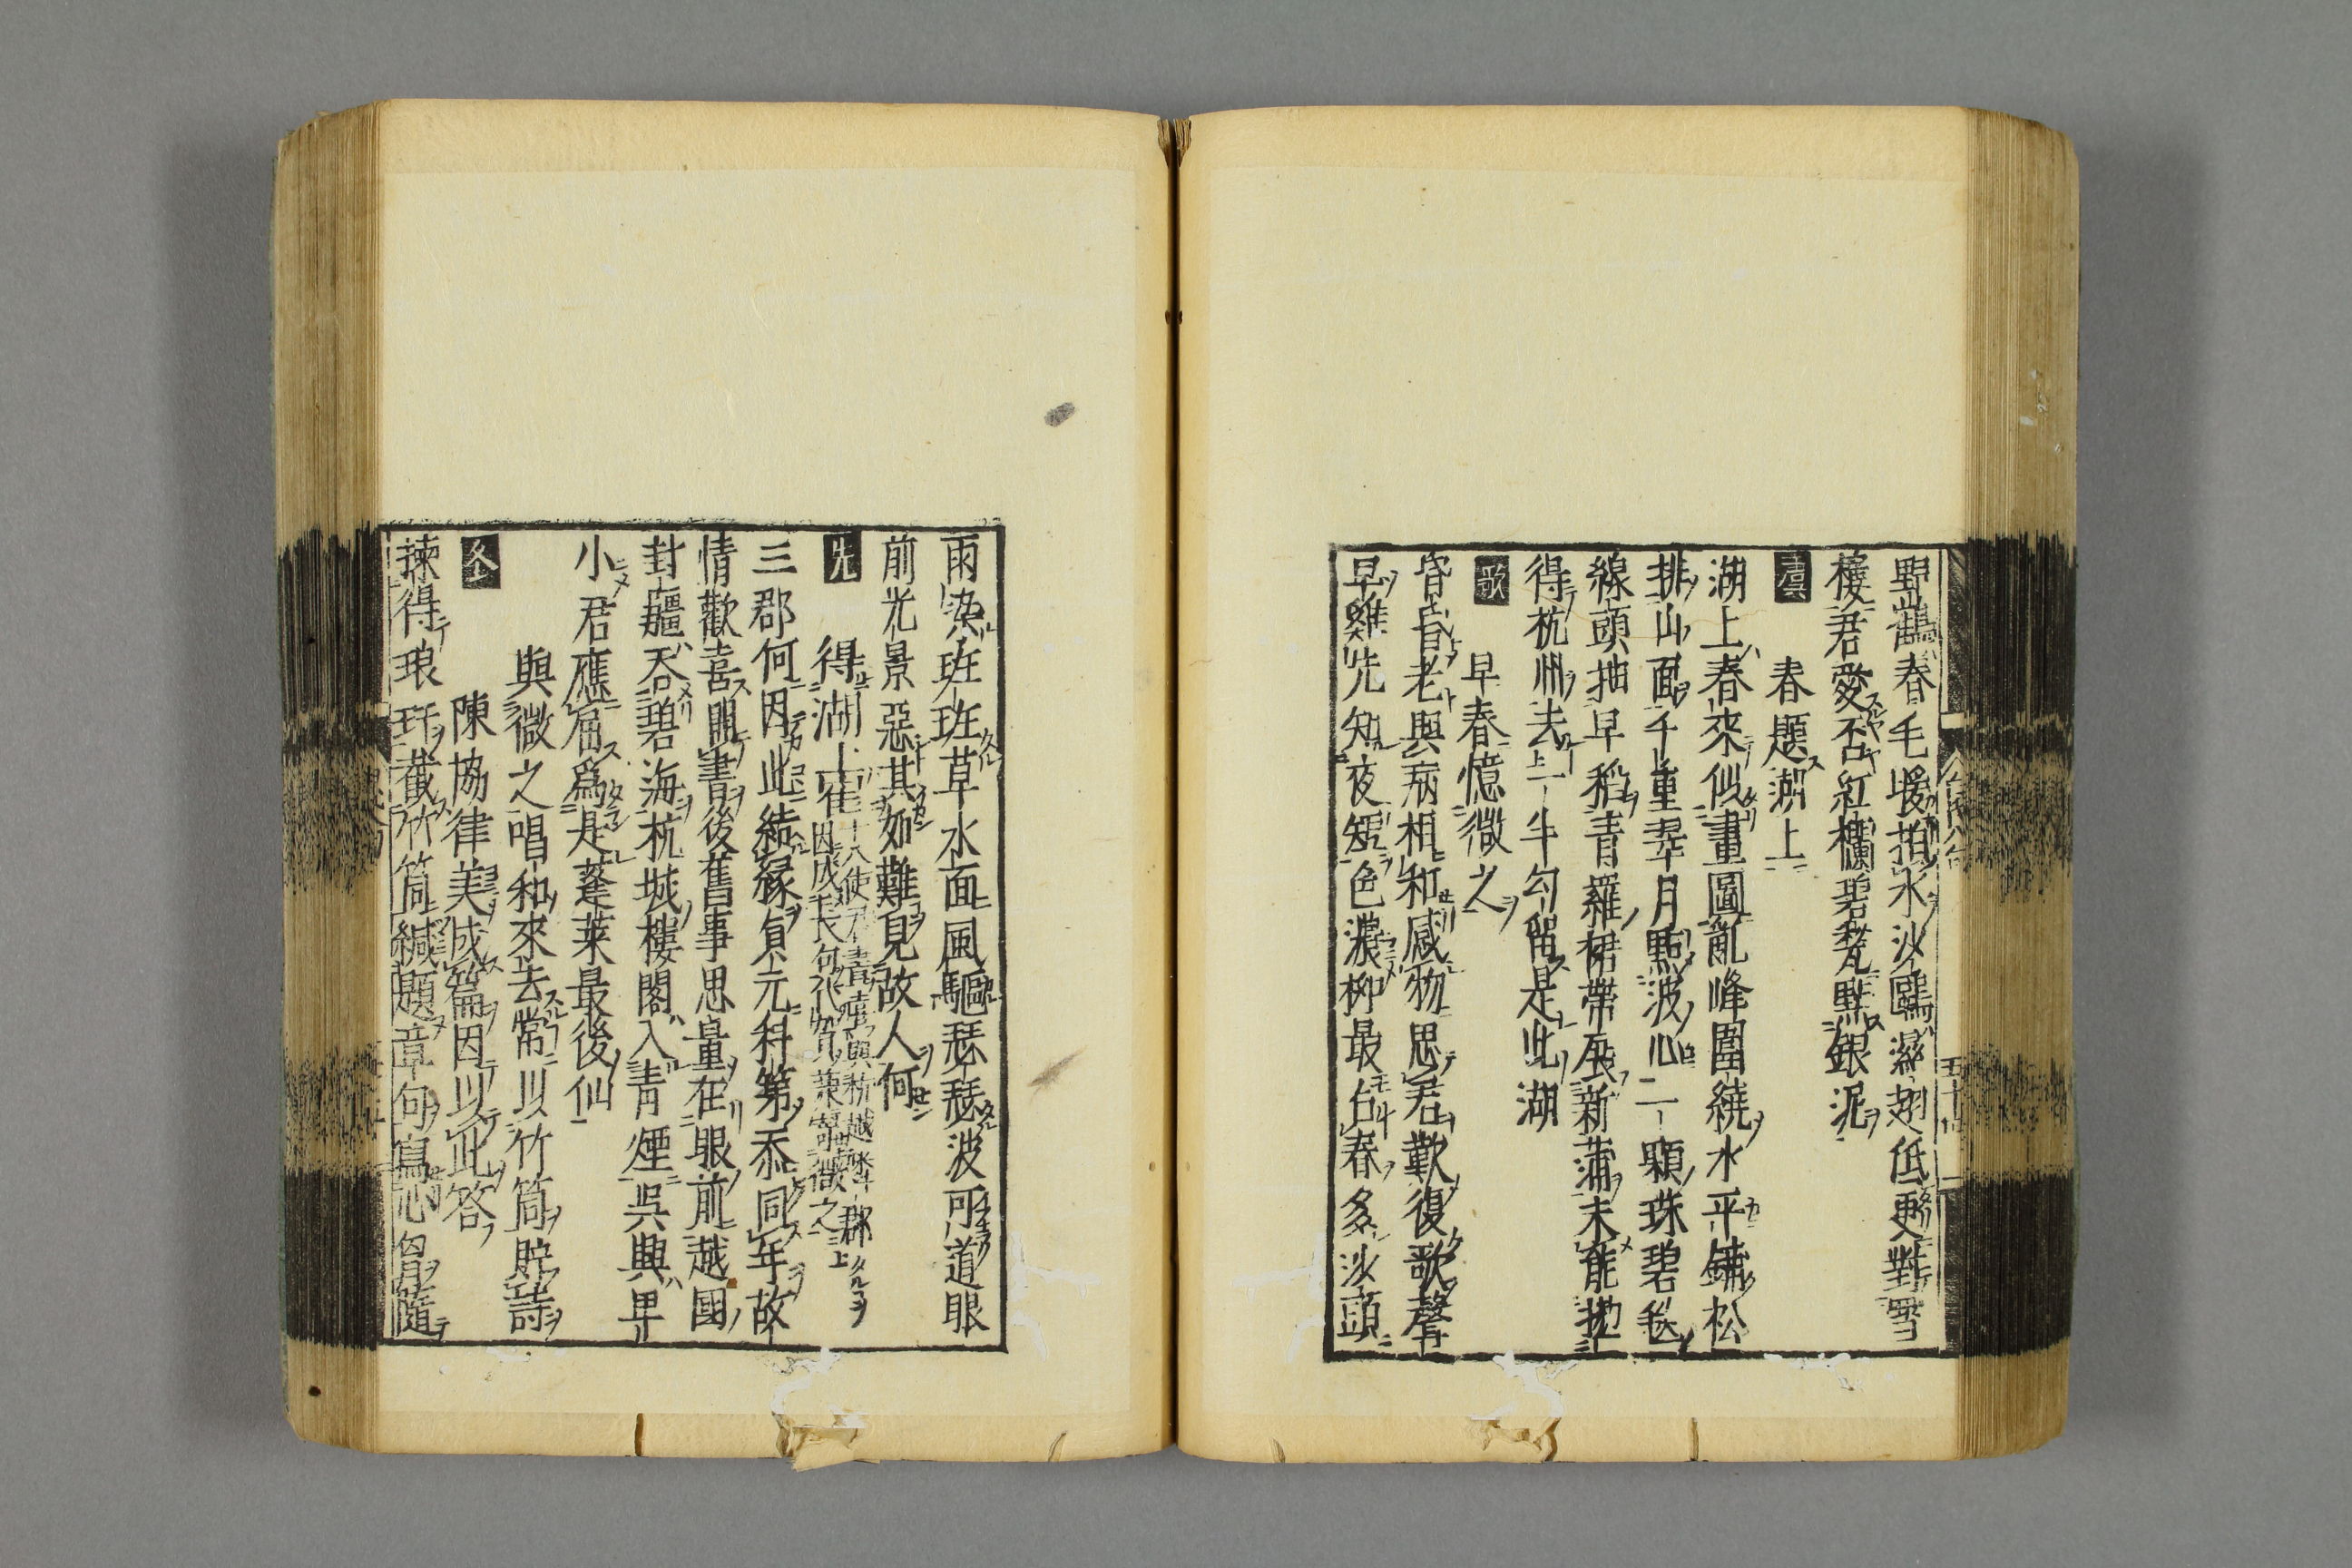 野鶴春毛暖拍水沙鷗濕翅低更對雪
樓君愛否紅欄碧甃點銀泥
春題湖上
湖上春來似畫圖亂峰圍繞水平鋪松
排山面千重翠月點波心一顆珠碧毯
線頭抽早稻青羅裙帶展新蒲未能拋
得杭州去一半勾留是此湖
歌
早春憶微之
昏昏老與病相和感物思君歎復歌聲
早雞先知夜短色濃柳最占春多沙頭
五十
雨染斑斑草水面風驅瑟瑟波可道眼
前光景惡其如難見故人何
先
得湖上崔十八使君書喜與杭越隣郡
因成長句代賀兼寄微之
三郡何因此結緣貞元科第忝同年故
情歡喜開書後舊事思量在眼前越國
封疆吞碧海杭城樓閣入青煙吳興卑
小君應屈為是蓬萊最後仙
與微之唱和來去常以竹筒貯詩
陳協律美成篇因以此答
揀得琅玕截作筒緘題章句寫心胷隨